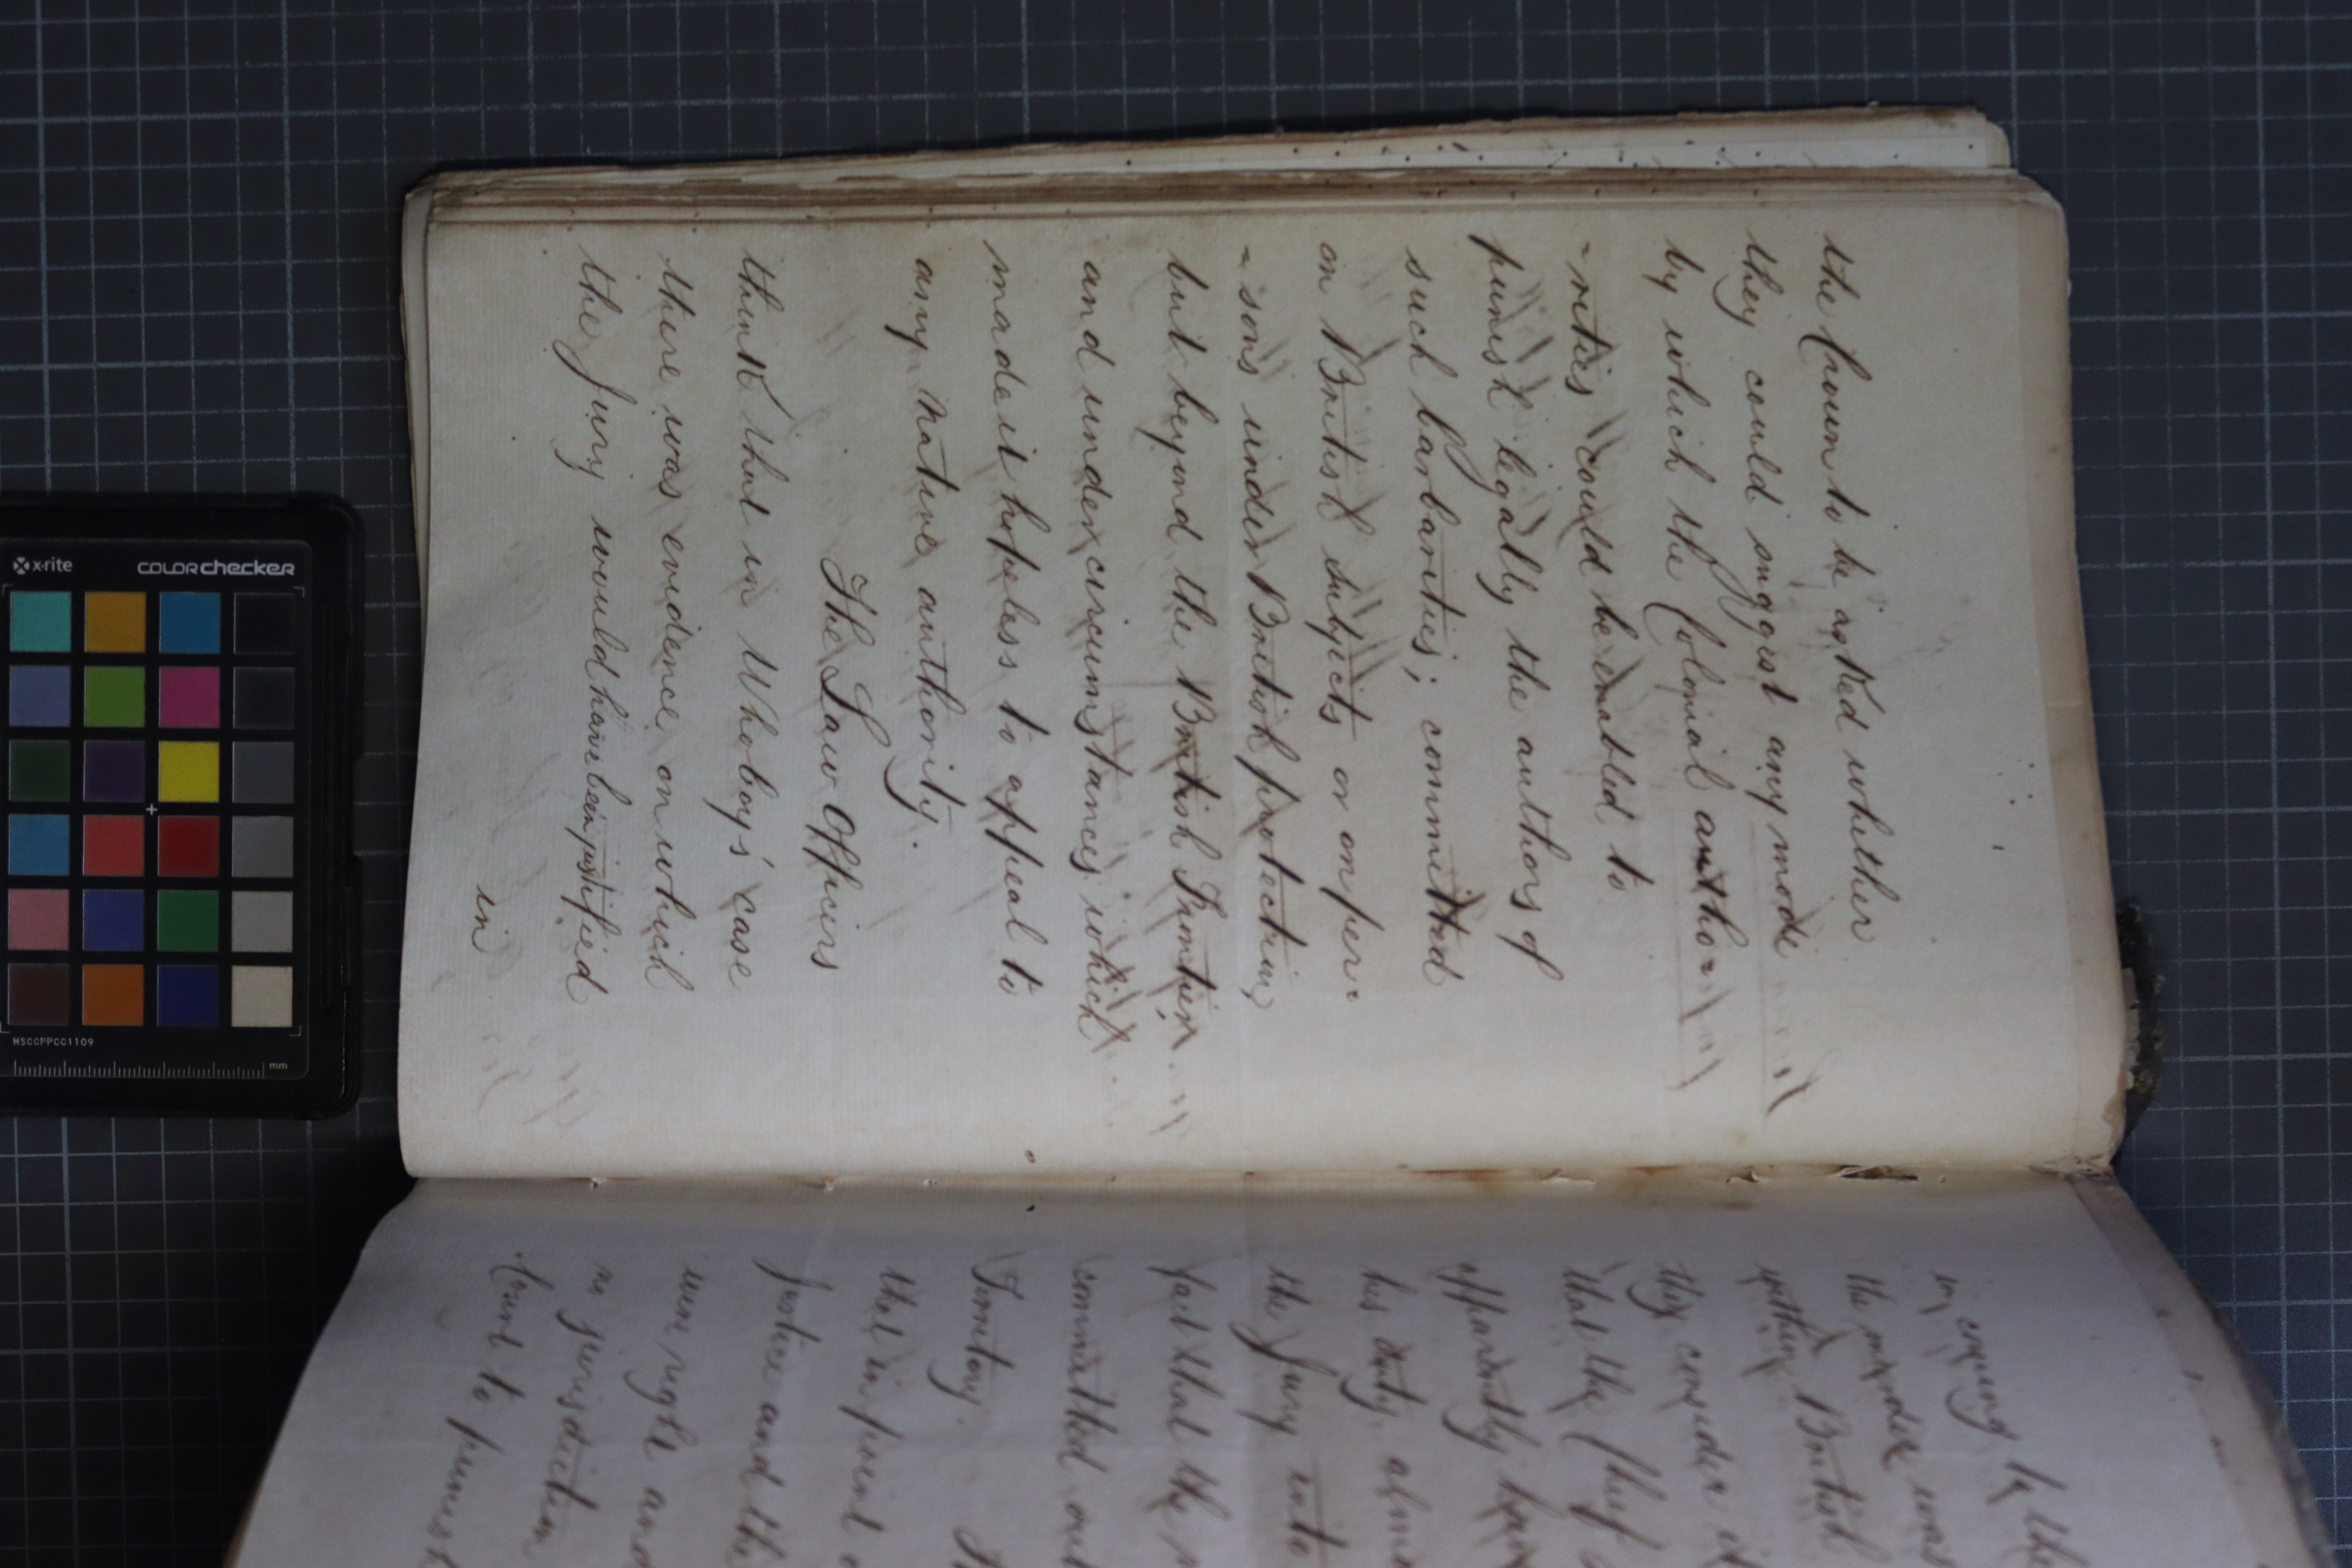 the Crown to be asked whether
they could suggest any mode
by which the Colonial autho-
-rities could be enabled to
punish legally the authors of
such barbarities; committed
on British subjects or on per-
-sons under British protection,
but beyond the British Frontier,
and under circumstances which
made it hopeless to appeal to
any native authority.
The Law Officers
think that in Whoboy's case
there was evidence on which
the Jury would have been justified
in
in coming to the
the murder was
within British
they consider it
that the Chief
apparently
his duty,
the Jury into
fact that the
committed out
Territory.
that in point
Justice and the
were right and
no jurisdiction
Court to punish
x-rite
COLORchecker
MSCCPPCC1109
mm